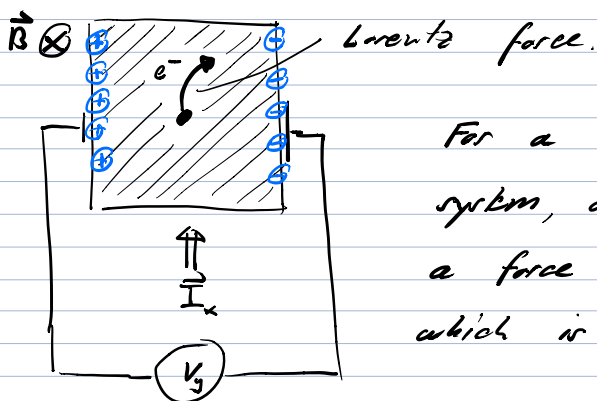 B⃗ ⊗
+ + + + +
- - - - -
e⁻
Lorentz force.
For a
system, a
a force
which is
I⃗ₓ
V_y